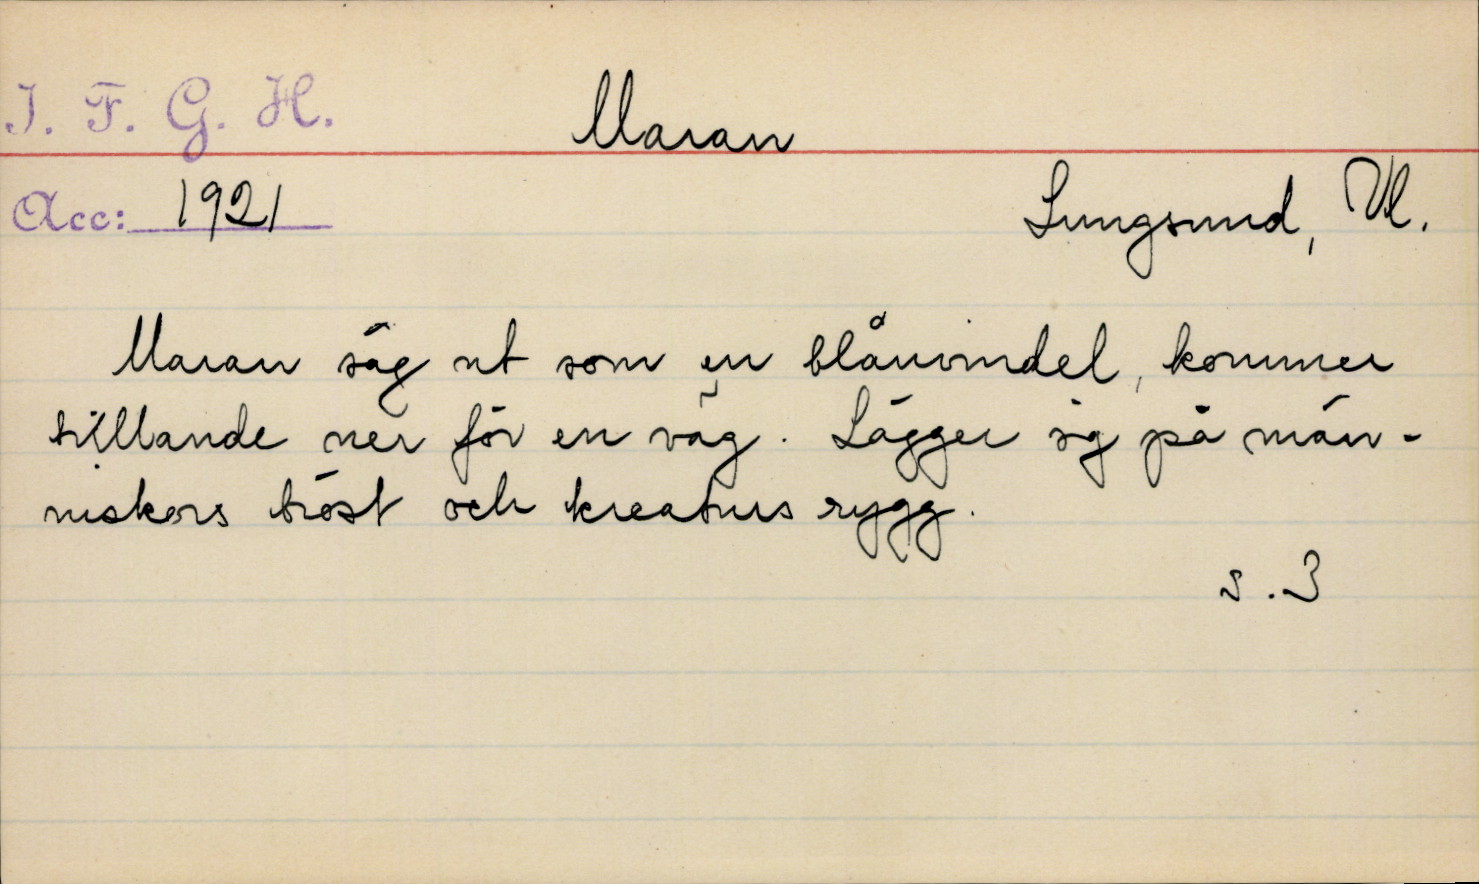 I. F. G. H.
Maran
Acc: 1921
Lungsund, Vl.
Maran såg ut som en blånvindel, kommer
trillande ner för en väg. Lägger sig på män-
niskors bröst och kreaturs rygg.
s. 3